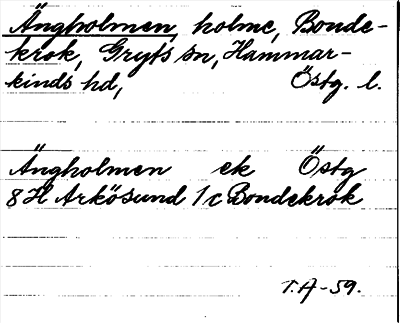 Ängholmen, holme, Bonde-
krok, Gryts sn, Hammar-
kinds hd, Östg. l.
Ängholmen ek Östg
8H Arkösund 1c Bondekrok
T.A-59.